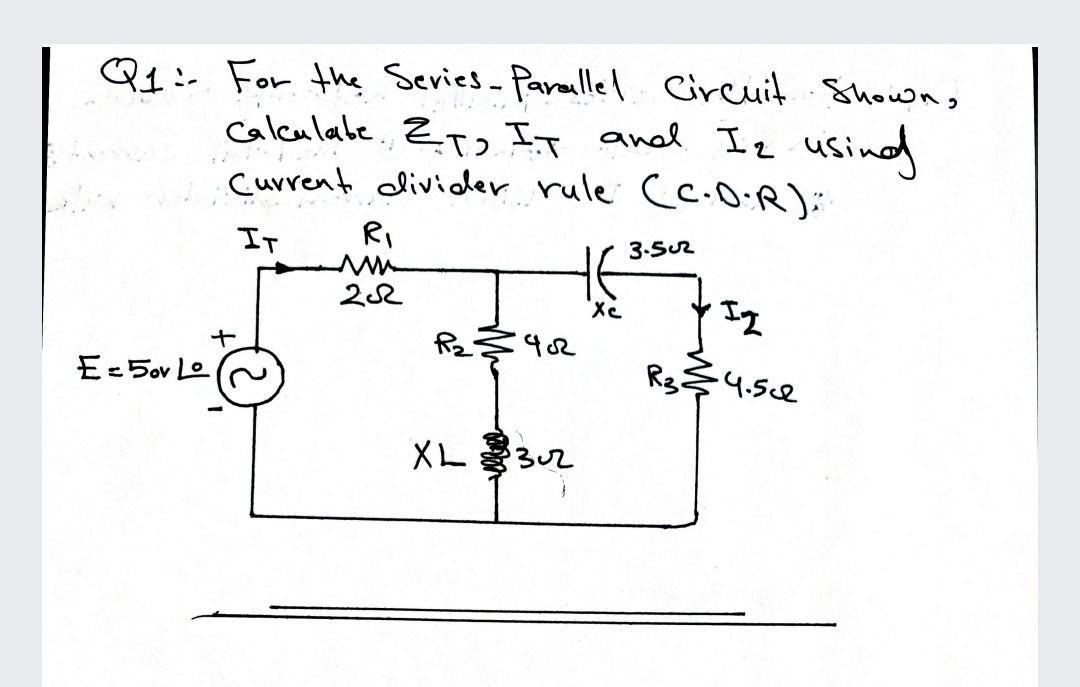 Q1:- For the Series-Parallel Circuit Shown,
Calculate ZT, IT and I2 using
Current divider rule (C.D.R).
IT
R1
2Ω
3.5Ω
Xc
I2
+
E = 50v L0
-
R2
4Ω
R3
4.5Ω
XL
3Ω